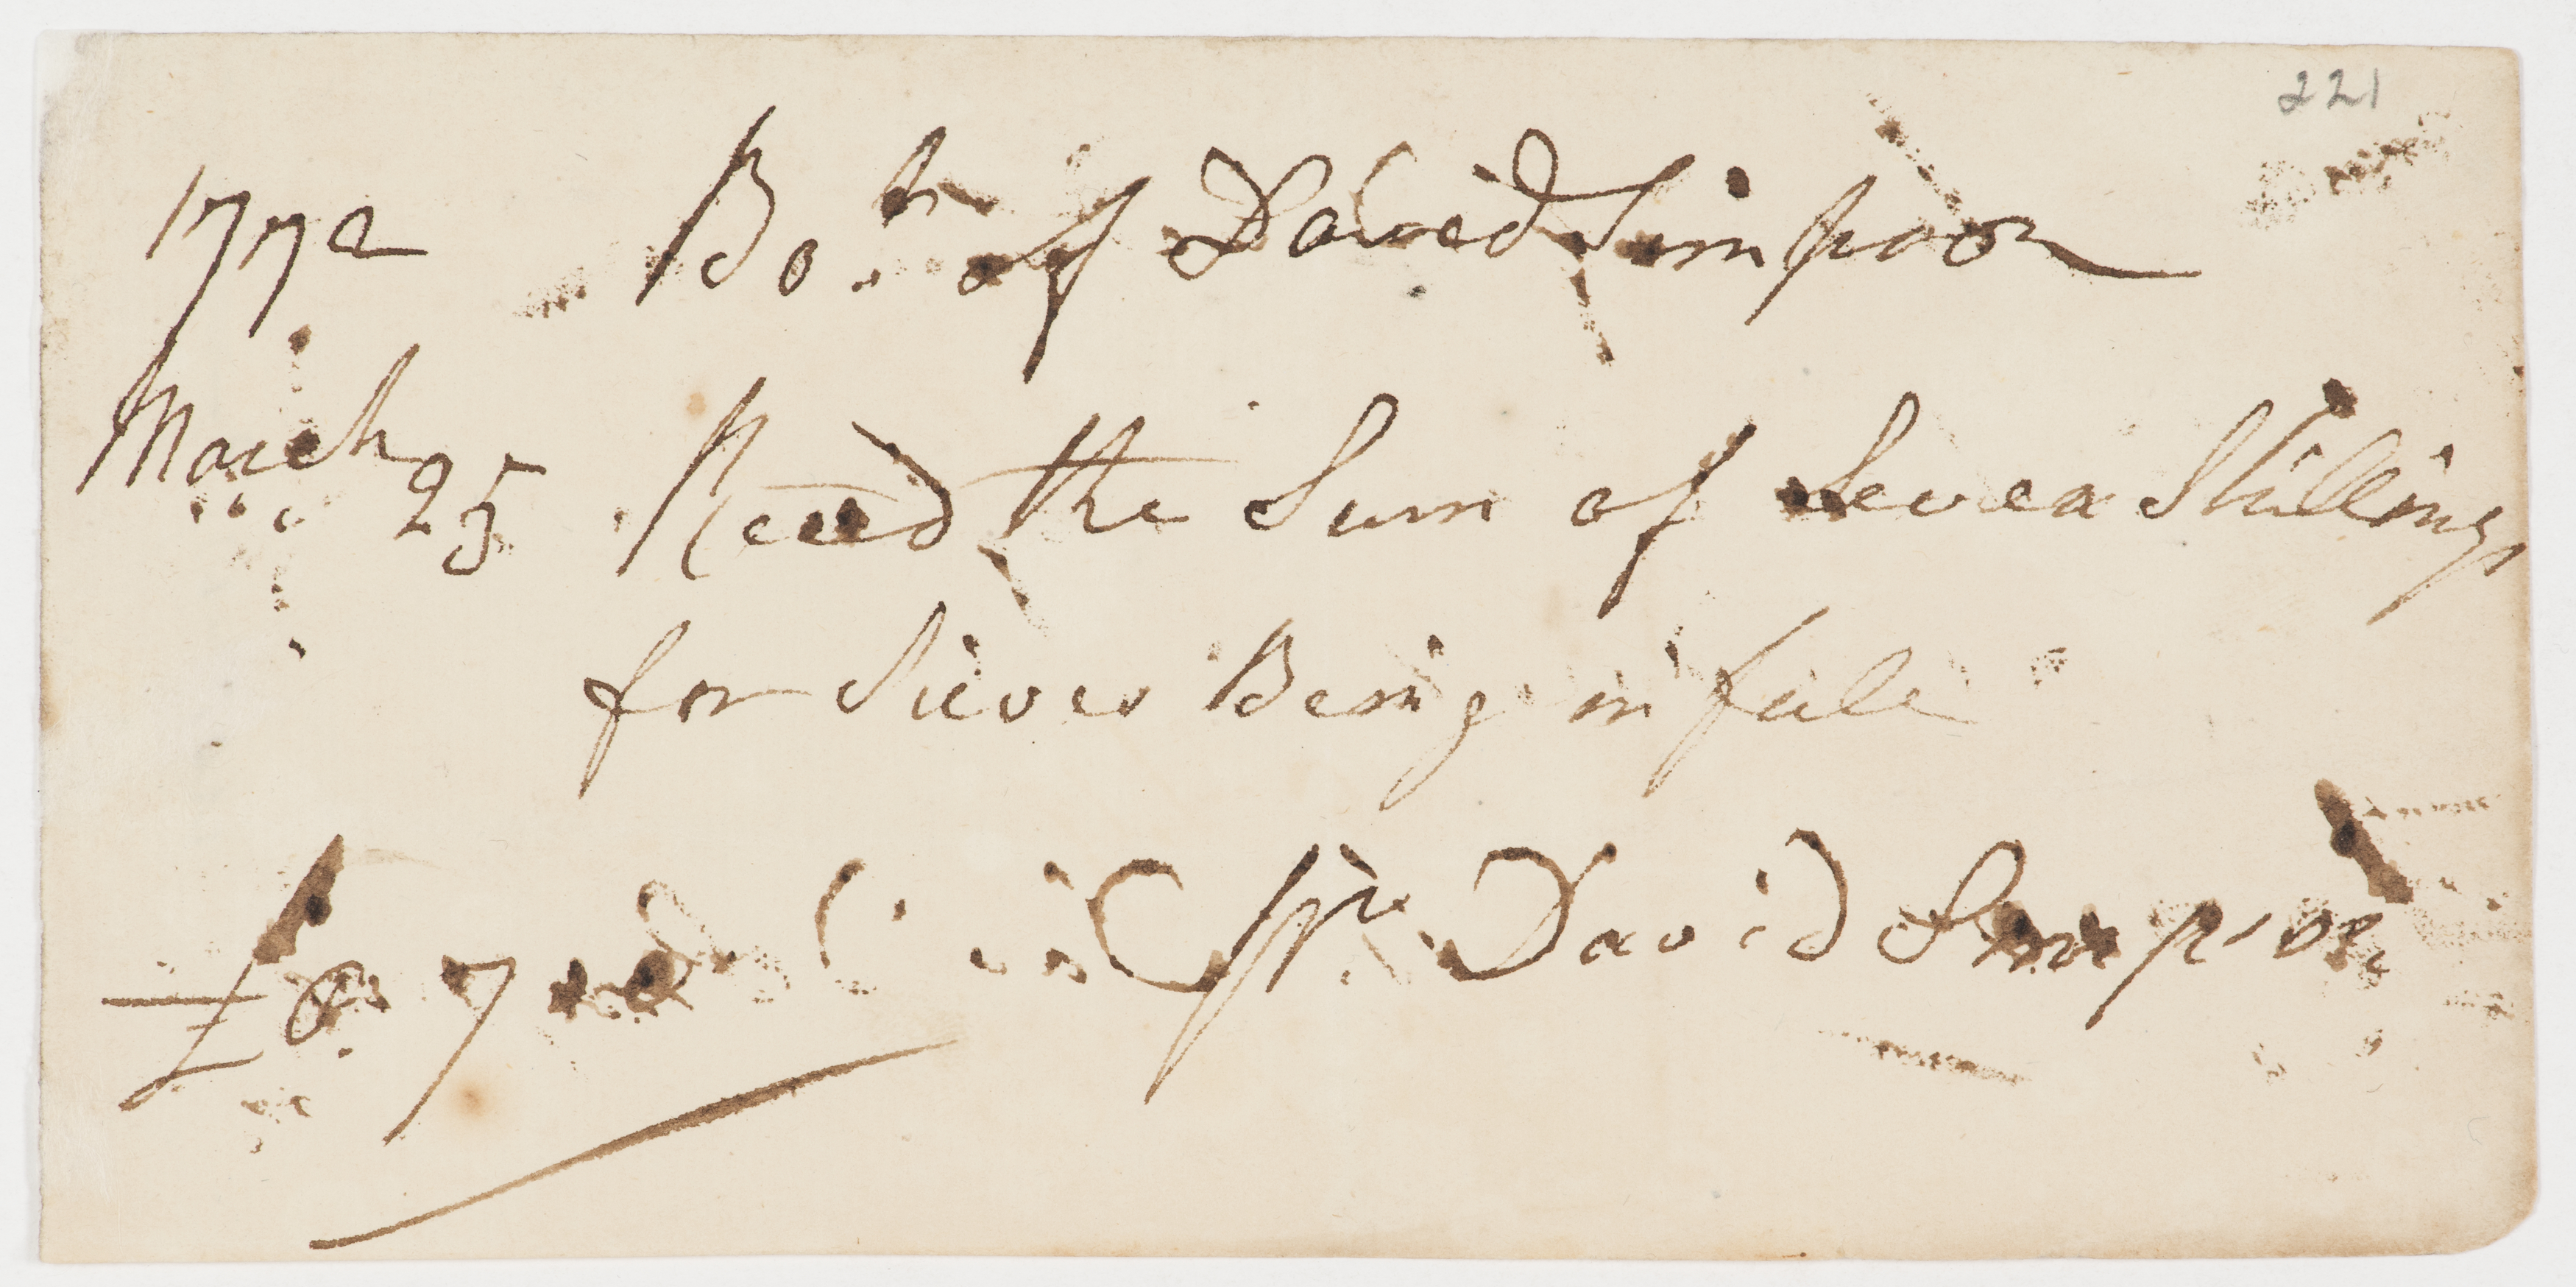 221
1772 Bo.t of David Simpson
March 25 Recd the Sum of Seven Shillings
for Sieves Being in full
£0 7 pr David Simpson